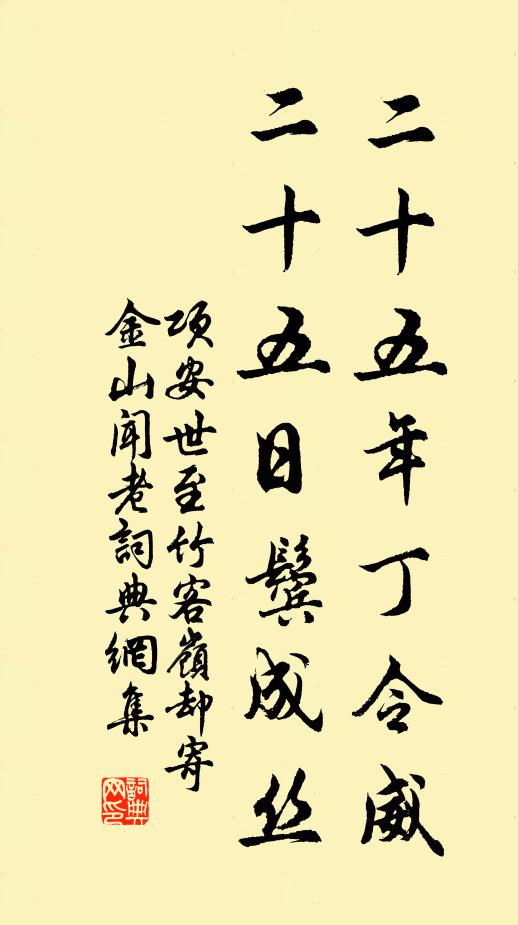 二十五年丁令威
二十五日鬓成丝
项安世至竹客嶺却寄
金山闻老詞典網集
詞典网印